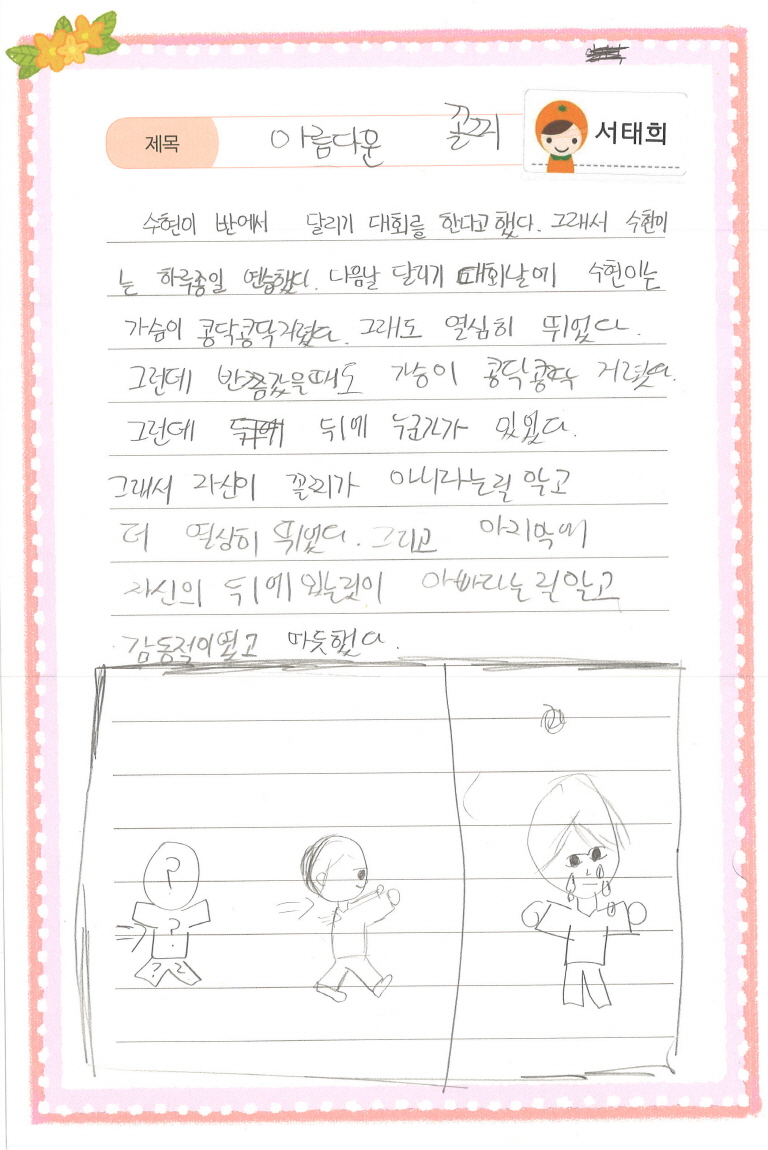 제목 아름다운 꼴찌 서태희
수현이 반에서 달리기 대회를 한다고 했다. 그래서 수현이
는 하루종일 연습했다. 다음날 달리기 대회날에 수현이는
가슴이 콩닥콩닥거렸다. 그래도 열심히 뛰었다.
그런데 반쯤갔을때도 가슴이 콩닥콩닥 거렸다.
그런데 뒤에 누군가가 있었다.
그래서 자신이 꼴찌가 아니라는걸 알고
더 열심히 뛰었다. 그리고 마지막에
자신의 뒤에 있는것이 아빠라는걸 알고
감동적이였고 따듯했다.
?
?
? ?